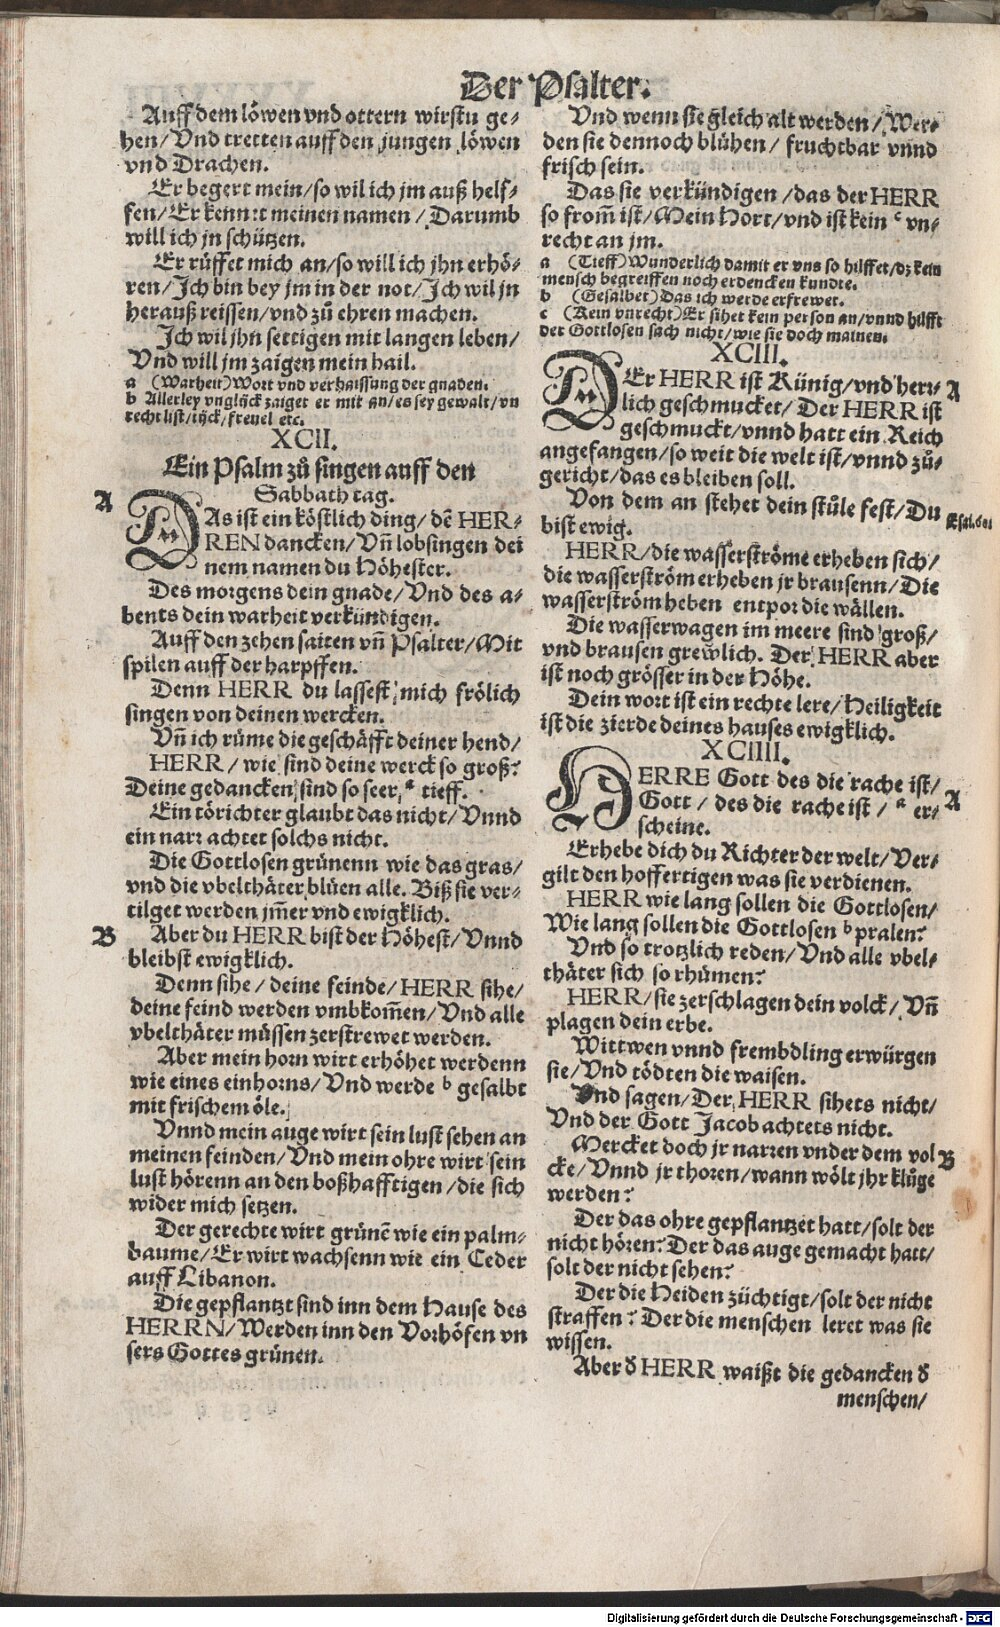 Der Psalter.
Auff dem löwen vnd ottern wirstu ge-
hen/Vnd tretten auff den jungen löwen
vnd Drachen.
Er begert mein/so wil ich jm auß helf-
fen/Er kennet meinen namen/Darumb
will ich jn schützen.
Er rüffet mich an/so will ich jhn erhö-
ren/Ich bin bey jm in der not/Ich wil jn
herauß reissen/vnd zů ehren machen.
Ich wil jhn settigen mit langen leben/
Vnd will jm zaigen mein hail.
a (Warheit) Wort vnd verhaissung der gnaden.
b Allerley vnglück zaiget er mit an/es sey gewalt/vn
recht list/tück/freuel etc.
XCII.
Ein Psalm zů singen auff den
Sabbath tag.
A
DAs ist ein köstlich ding/dē HER-
REN dancken/Vñ lobsingen dei
nem namen du Höhester.
Des morgens dein gnade/Vnd des a-
bents dein warheit verkündigen.
Auff den zehen saiten vñ Psalter/Mit
spilen auff der harpffen.
Denn HERR du lassest mich frölich
singen von deinen wercken.
Vñ ich rüme die geschäfft deiner hend/
HERR/wie sind deine werck so groß?
Deine gedancken sind so seer a tieff.
Ein törichter glaubt das nicht/Vnnd
ein narr achtet solchs nicht.
Die Gottlosen grünenn wie das gras/
vnd die vbelthäter blüen alle. Biß sie ver-
tilget werden jm̄er vnd ewigklich.
B
Aber du HERR bist der Höhest/Vnnd
bleibst ewigklich.
Denn sihe/deine feinde/HERR sihe/
deine feind werden vmbkom̄en/Vnd alle
vbelthäter müssen zerstrewet werden.
Aber mein horn wirt erhöhet werdenn
wie eines einhorns/Vnd werde b gesalbt
mit frischem öle.
Vnnd mein auge wirt sein lust sehen an
meinen feinden/Vnd mein ohre wirt sein
lust hörenn an den boßhafftigen/die sich
wider mich setzen.
Der gerechte wirt grünē wie ein palm-
baume/Er wirt wachsenn wie ein Ceder
auff Libanon.
Die gepflantzt sind inn dem Hause des
HERRN/Werden inn den Vorhöfen vn
sers Gottes grünen.
Vnd wenn sie gleich alt werden/Wer-
den sie dennoch blühen/fruchtbar vnnd
frisch sein.
Das sie verkündigen/das der HERR
so from̄ ist/Mein Hort/vnd ist kein c vn-
recht an jm.
a (Tieff) Wunderlich damit er vns so hilffet/dz kein
mensch begreiffen noch erdencken kundte.
b (Gesalbet) Das ich werde erfrewet.
c (Kein vnrecht) Er sihet kein person an/vnnd hilfft
der Gottlosen sach nicht/wie sie doch mainen.
XCIII.
DEr HERR ist Künig/vnd herr-
A
lich geschmucket/Der HERR ist
geschmuckt/vnnd hatt ein Reich
angefangen/so weit die welt ist/vnnd zů-
gericht/das es bleiben soll.
Von dem an stehet dein stůle fest/Du
bist ewig.
HERR/die wasserströme erheben sich/
die wasserström erheben jr brausenn/Die
wasserström heben entpor die wällen.
Die wasserwagen im meere sind groß/
vnd brausen grewlich. Der HERR aber
ist noch grösser in der Höhe.
Dein wort ist ein rechte lere/Heiligkeit
ist die zierde deines hauses ewigklich.
XCIIII.
HERRE Gott des die rache ist/
Gott/des die rache ist/a er-
A
scheine.
Erhebe dich du Richter der welt/Ver-
gilt den hoffertigen was sie verdienen.
HERR wie lang sollen die Gottlosen/
Wie lang sollen die Gottlosen b pralen?
Vnd so trotzlich reden/Vnd alle vbel-
thäter sich so rhümen?
HERR/sie zerschlagen dein volck/Vñ
plagen dein erbe.
Wittwen vnnd frembdling erwürgen
sie/Vnd tödten die waisen.
Vnd sagen/Der HERR sihets nicht/
Vnd der Gott Jacob achtets nicht.
Mercket doch jr narren vnder dem vol
B
cke/Vnnd jr thoren/wann wölt jhr klůge
werden?
Der das ohre gepflantzet hatt/solt der
nicht hören? Der das auge gemacht hatt/
solt der nicht sehen?
Der die Heiden züchtigt/solt der nicht
straffen? Der die menschen leret was sie
wissen.
Aber ð HERR waißt die gedancken ð
menschen/
Digitalisierung gefördert durch die Deutsche Forschungsgemeinschaft - DFG